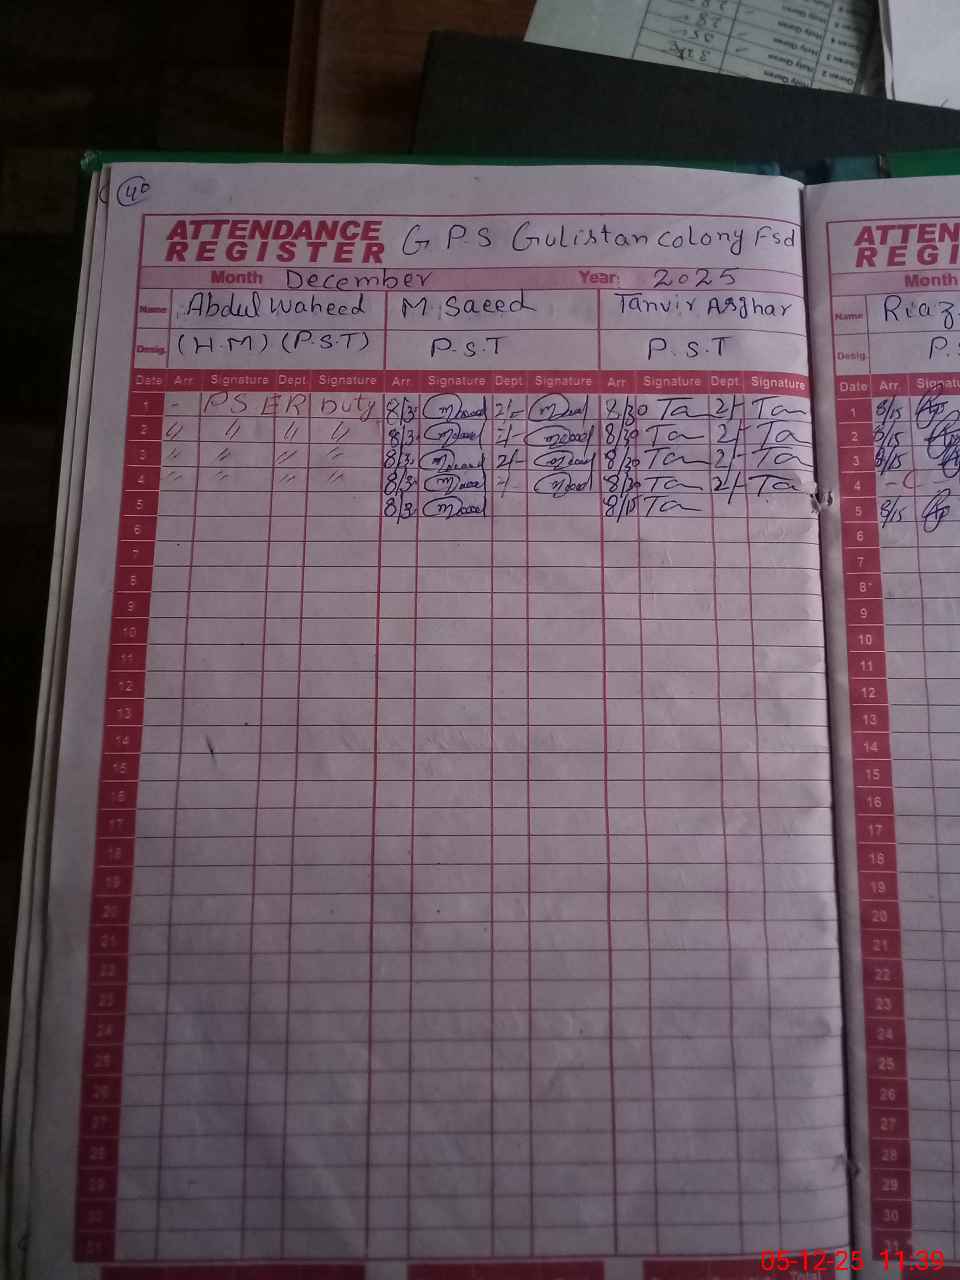 40
ATTENDANCE REGISTER G P.S Gulistan colony Fsd
Month December Year: 2025
Name Abdul Waheed M. Saeed Tanvir Asghar
Desig. (H.M) (P.S.T) P.S.T P.S.T
Date Arr. Signature Dept. Signature Arr. Signature Dept. Signature Arr. Signature Dept. Signature
1 - PSER Duty 8/3. 2/- 8/30 Ta 2/- Ta
2 " " " " 8/3. 8/30 Ta 2/- Ta
3 " " " " 8/3. 2/- 8/30 Ta 2/- Ta
4 " " " " 8/3. 8/30 Ta 2/- Ta
5 8/3. 8/15 Ta
6
7
8
9
10
11
12
13
14
15
16
17
18
19
20
21
22
23
24
25
26
27
28
29
30
31
ATTEN
REGI
Month
Name Riaz
Desig. P.
Date Arr. Signatu
1 8/15
2 8/15
3 8/15
4
5 8/15
6
7
8
9
10
11
12
13
14
15
16
17
18
19
20
21
22
23
24
25
26
27
28
29
30
31
05-12-25 11:39